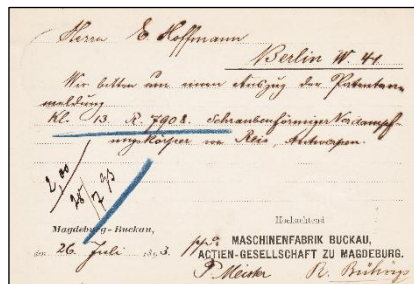 Herrn E. Hoffmann
Berlin W. 41
Wir bitten um einen Auszug der Patentan-
meldung
Kl. 13. R. 7908. Schraubenförmiger Verdampf-
ungskörper von Reis, Antwerpen.
2,00
28/7 93
Hochachtend
Magdeburg-Buckau,
den 26. Juli 1893.
ppa. MASCHINENFABRIK BUCKAU,
ACTIEN-GESELLSCHAFT ZU MAGDEBURG.
P. Meister